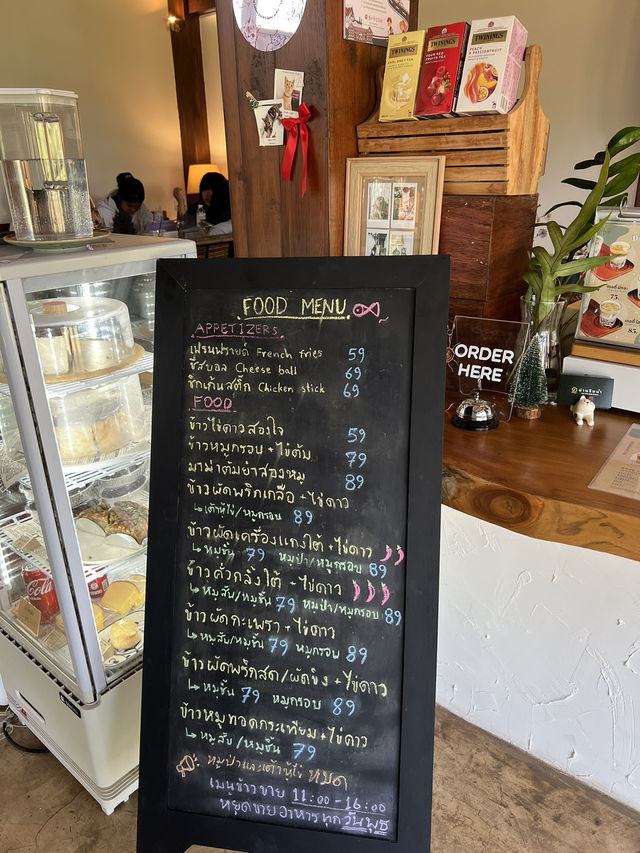 TWININGS
EARL GREY TEA
TWININGS
FOUR RED FRUITS TEA
TWININGS
PEACH & PASSIONFRUIT
FOOD MENU
APPETIZERS
เฟรนฟรายด์ French fries 59
ชีสบอล Cheese ball 69
ชิกเก้นสติ๊ก Chicken stick 69
FOOD
ข้าวไข่ดาวสองใจ 59
ข้าวหมูกรอบ + ไข่ต้ม 79
มาม่าต้มยำสองหมู 89
ข้าวผัดพริกเกลือ + ไข่ดาว
↳ เต้าหู้ไข่/หมูกรอบ 89
ข้าวผัดเครื่องแกงใต้ + ไข่ดาว
↳ หมูชิ้น 79 หมูป่า/หมูกรอบ 89
ข้าวคั่วกลิ้งใต้ + ไข่ดาว
↳ หมูสับ/หมูชิ้น 79 หมูป่า/หมูกรอบ 89
ข้าวผัดกะเพรา + ไข่ดาว
↳ หมูสับ/หมูชิ้น 79 หมูกรอบ 89
ข้าวผัดพริกสด/ผัดขิง + ไข่ดาว
↳ หมูชิ้น 79 หมูกรอบ 89
ข้าวหมูทอดกระเทียม + ไข่ดาว
↳ หมูสับ/หมูชิ้น 79
หมูป่าและเต้าหู้ไข่ หมด
เมนูข้าว ขาย 11:00 - 16:00
หยุดขายอาหารทุกวันพุธ
ORDER
HERE
Cola
75